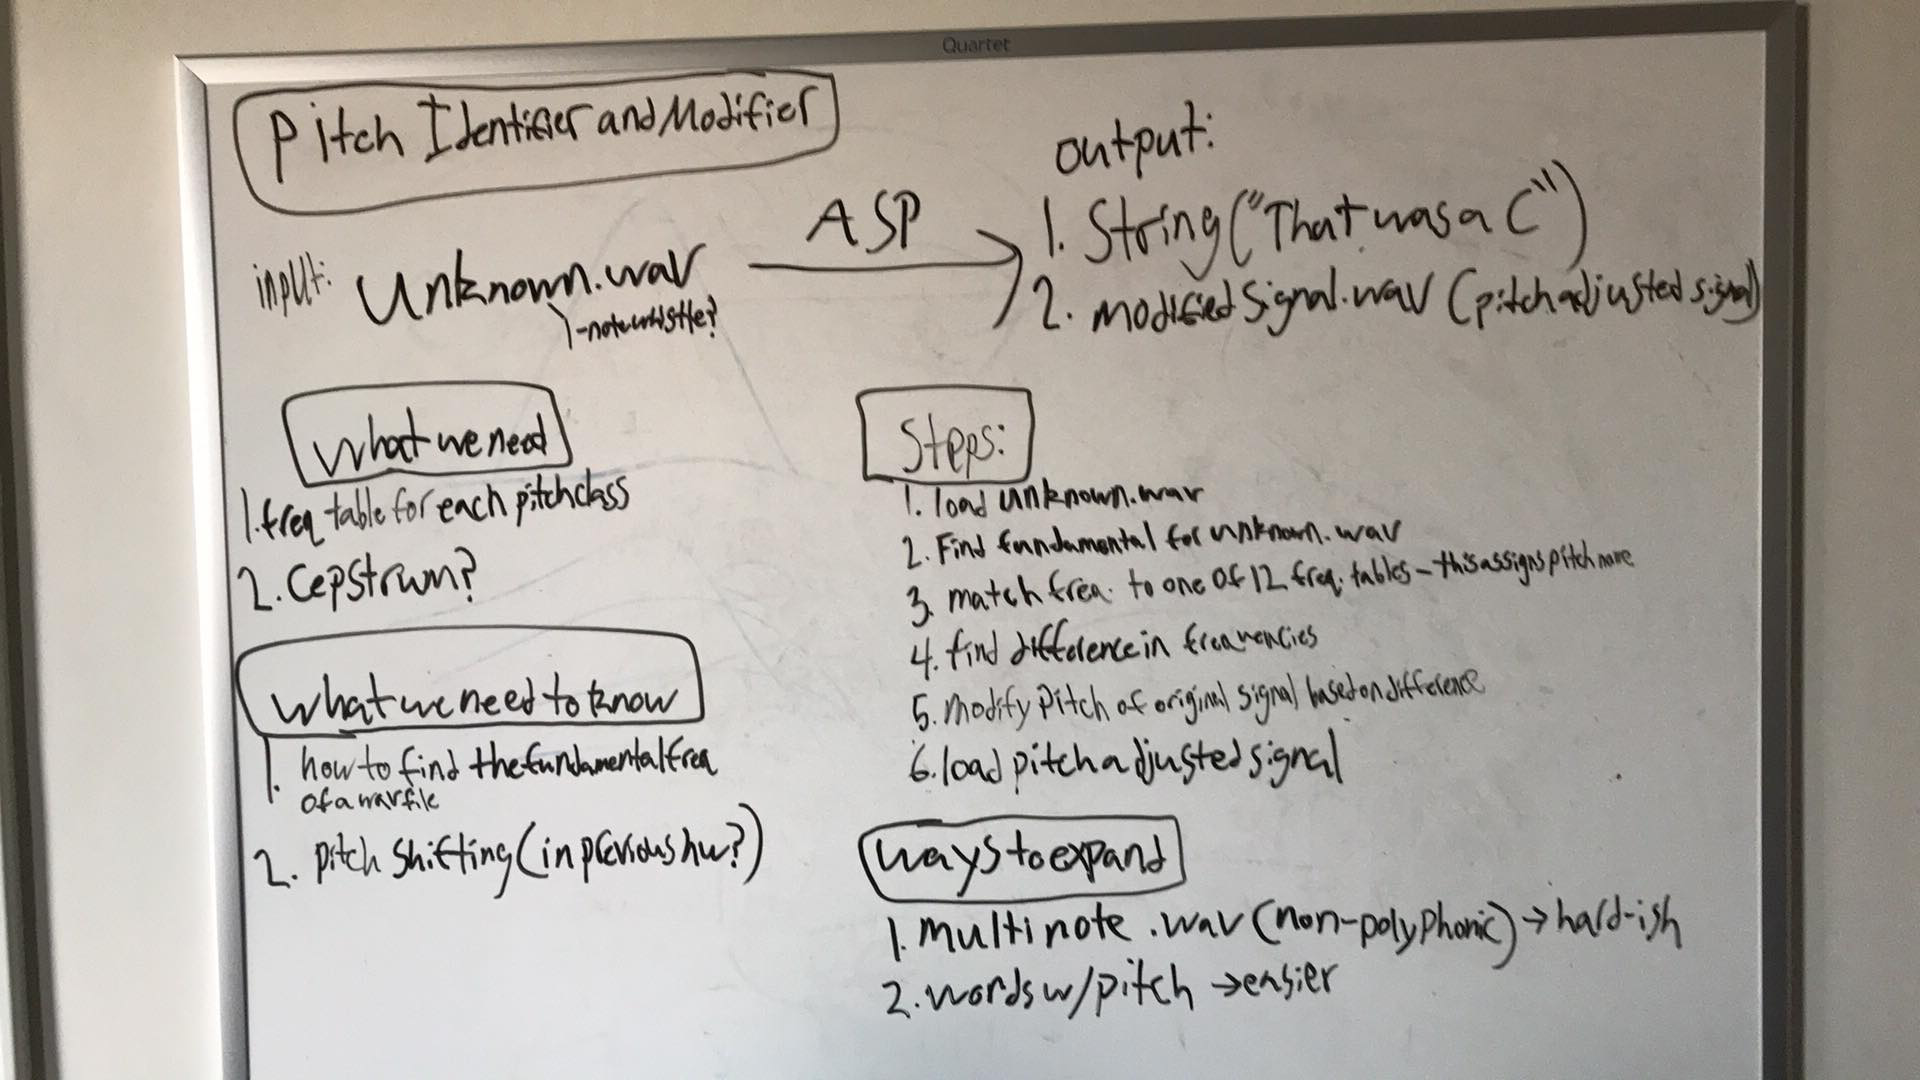 Quartet
Pitch Identifier and Modifier
input: Unknown.wav
1-note whistle?
ASP
output:
1. String ("That was a C")
2. modifiedSignal.wav (pitch adjusted signal)
What we need
1. freq table for each pitch class
2. Cepstrum?
what we need to know
1. how to find the fundamental freq
of a wav file
2. pitch shifting (in previous hw?)
Steps:
1. load unknown.wav
2. Find fundamental for unknown.wav
3. match freq. to one of 12 freq. tables - this assigns pitch name
4. find difference in frequencies
5. modify pitch of original signal based on difference
6. load pitch adjusted signal
ways to expand
1. multi note .wav (non-polyphonic) → hard-ish
2. words w/ pitch → easier